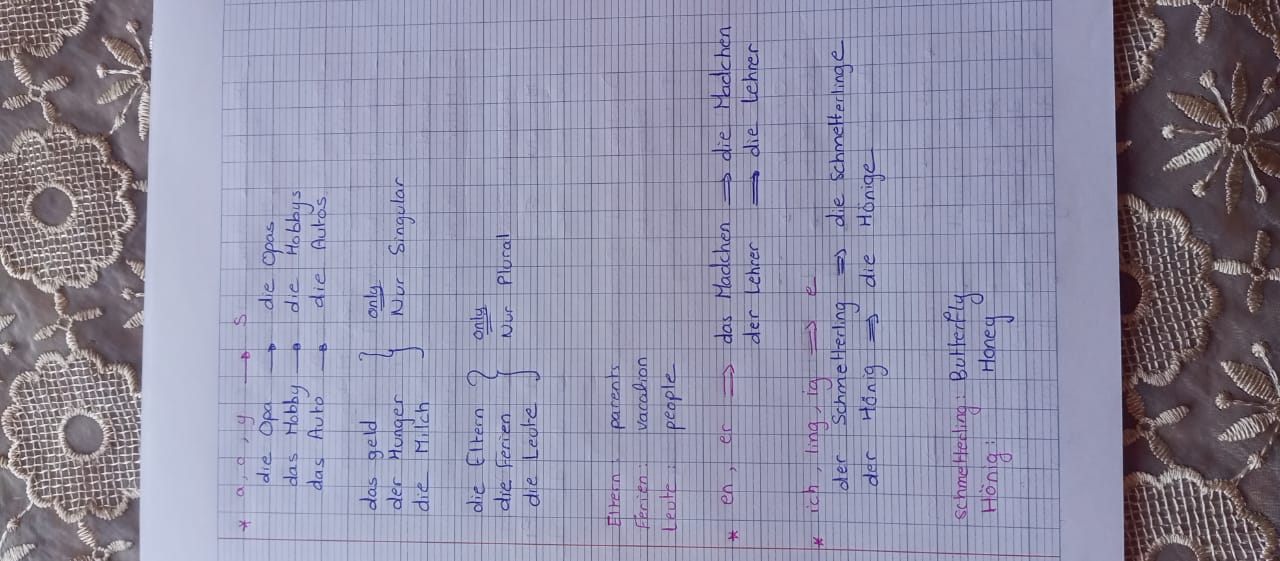 * a, o, y → s
die Opa → die Opas
das Hobby → die Hobbys
das Auto → die Autos
das geld } only
der Hunger } Nur Singular
die Milch
die Eltern } only
die Ferien } Nur Plural
die Leute
Eltern : parents
Ferien : vacation
Leute : people
* en, er ⇒ das Madchen ⇒ die Madchen
der Lehrer ⇒ die Lehrer
* ich, ling, ig ⇒ e
der Schmetterling ⇒ die schmetterlinge
der Hönig ⇒ die Hönige
schmetterling : Butterfly
Hönig : Honey